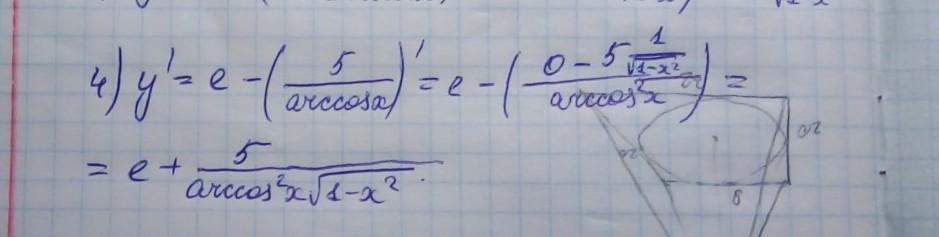 4) y' = e - (5/arccosx)' = e - ((0 - 5 1/√(1-x²))/arccos²x) =
= e + 5/(arccos²x√(1-x²)).